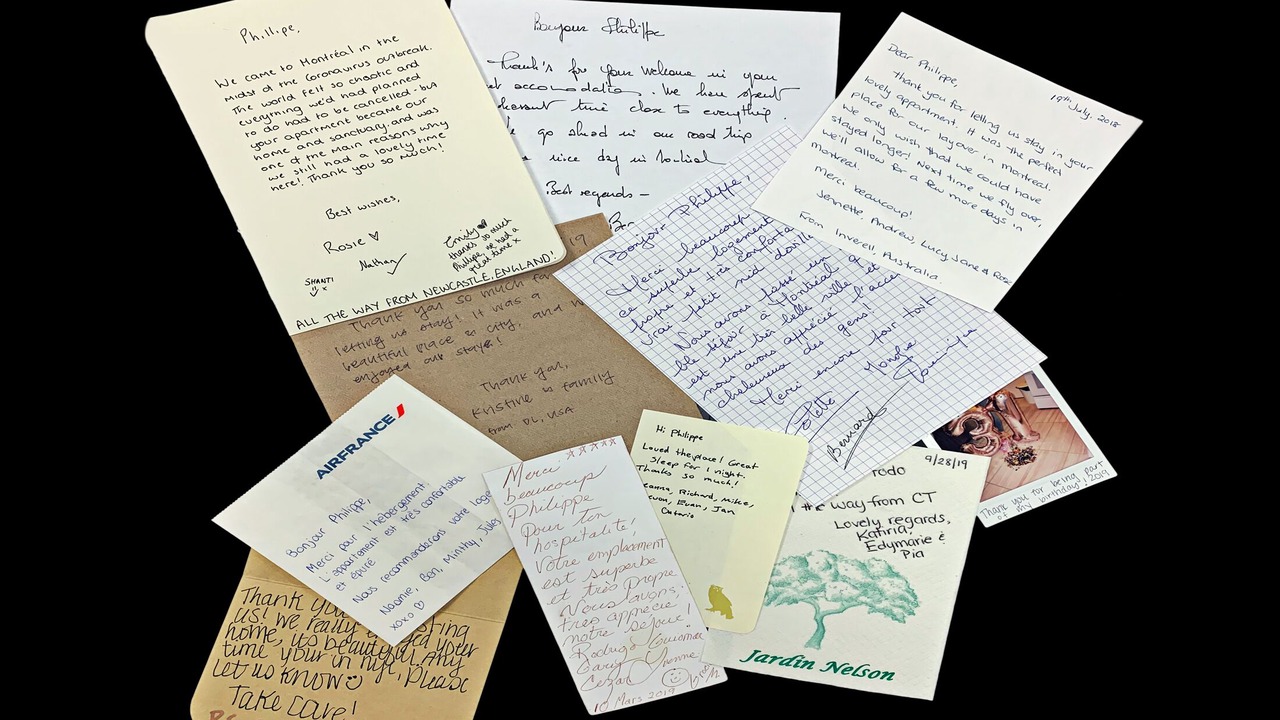 Phillipe,
We came to Montréal in the
midst of the coronavirus outbreak.
The world fell so chaotic and
everything we'd had planned
to do had to be cancelled - but
your apartment became our
home and sanctuary and was
one of the main reasons why
we still had a lovely time
here! Thank you so much!
Best wishes,
Rosie
Nathan
SHANTI
Emily
thanks so much
Philippe we had a
great time x
ALL THE WAY FROM NEWCASTLE, ENGLAND!
Bonjour Philippe
Thank's for your welcome in your
accomodation. We have spent
time close to everything.
go ahead in our road trip
nice day in
Best regards -
19th July, 2018
Dear Philippe,
Thank you for letting us stay in your
lovely appartment. It was the perfect
place for our layover in Montreal.
We only wish that we could have
stayed longer! Next time we fly over,
we'll allow for a few more days in
Montreal.
Merci beaucoup!
Jennette, Andrew, Lucy, Jane &
From Inverell, Australia.
Bonjour Philippe,
Merci beaucoup
ce superbe logement
propre et très conforta
petit nid douillet
Nous avons passé un
ble séjour à Montréal
est une très belle ville et
nous avons apprécié l'accu
chaleureux des gens!
Merci encore pour tout
Colette
Bernard
Dominique
19
Thank you so much for
letting us stay! It was a
beautiful place & city, and we
enjoyed our stay!
Thank you,
Kristine & family
from DL, USA
AIRFRANCE
Bonjour Philippe,
Merci pour l'hébergement,
L'appartement est très confortable
et épuré
Nous recommanderons votre loge
Naomie, Ben, Minthy, Jules
xoxo
Thank you hosting
us! We really your
home, its beautiful. Any
time your in nyc, please
let us know
Take Care!
Merci
beaucoup
Philippe
Pour ton
hospitalité!
Votre emplacement
est superbe
et très propre
Nous avons
très apprécié
notre séjour!
Rodrigo
Gary Yvonne
Cezar
10 Mars 2019
Hi Philippe
Loved the place! Great
Sleep for 1 night.
Thanks so much!
Richard, Mike,
Evan, Jan
Ontario
9/28/19
Todo
the way from CT
Lovely regards,
Kathria,
Edymarie &
Pia
Jardin Nelson
Thank you for being part
of my birthday! 2019